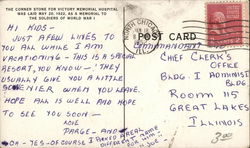 THE CORNER STONE FOR VICTORY MEMORIAL HOSPITAL
WAS LAID MAY 20, 1922, AS A MEMORIAL TO
THE SOLDIERS OF WORLD WAR I
HI KIDS -
JUST A FEW LINES TO
YOU ALL WHILE I AM
VACATIONING - THIS IS A
RESORT, YOU KNOW - THEY
USUALLY GIVE YOU A LITTLE
WHEN YOU LEAVE.
HOPE ALL IS WELL AND HOPE
TO SEE YOU SOON -
LOVE
AND
OH - YES - OF COURSE I
POST CARD
COMMANDANT
CHIEF CLERK'S
OFFICE
BLDG. 1 ADMINIST
BLDG.
ROOM 115
GREAT LAKES
ILLINOIS
3.00